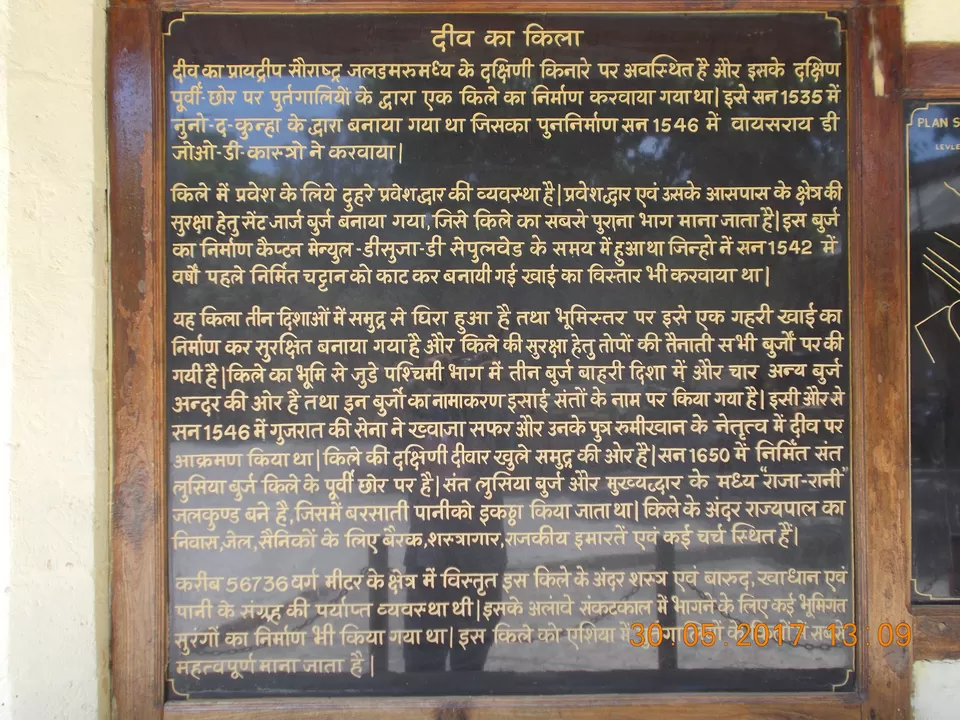 दीव का किला
दीव का प्रायद्वीप सौराष्ट्र जलडमरुमध्य के दक्षिणी किनारे पर अवस्थित है और इसके दक्षिण
पूर्वी-छोर पर पुर्तगालियों के द्वारा एक किले का निर्माण करवाया गया था| इसे सन 1535 में
नुनो-द-कुन्हा के द्वारा बनाया गया था जिसका पुननिर्माण सन 1546 में वायसराय डी
जोओ-डी-कास्त्रो ने करवाया|
किले में प्रवेश के लिये दुहरे प्रवेशद्वार की व्यवस्था है| प्रवेशद्वार एवं उसके आसपास के क्षेत्र की
सुरक्षा हेतु सेंट जार्ज बुर्ज बनाया गया, जिसे किले का सबसे पुराना भाग माना जाता है| इस बुर्ज
का निर्माण कैप्टन मेन्युल-डीसुजा-डी सेपुलवेड के समय में हुआ था जिन्हो नें सन 1542 में
वर्षों पहले निर्मित चट्टान को काट कर बनायी गई खाई का विस्तार भी करवाया था|
यह किला तीन दिशाओं में समुद्र से घिरा हुआ है तथा भूमिस्तर पर इसे एक गहरी खाई का
निर्माण कर सुरक्षित बनाया गया है और किले की सुरक्षा हेतु तोपों की तैनाती सभी बुर्जों पर की
गयी है| किले का भूमि से जुडे पश्चिमी भाग में तीन बुर्ज बाहरी दिशा में और चार अन्य बुर्ज
अन्दर की ओर है तथा इन बुर्जों का नामाकरण इसाई संतों के नाम पर किया गया है| इसी और से
सन 1546 में गुजरात की सेना ने ख्वाजा सफर और उनके पुत्र रुमीखान के नेतृत्व में दीव पर
आक्रमण किया था| किले की दक्षिणी दीवार खुले समुद्र की ओर है| सन 1650 में निर्मित संत
लुसिया बुर्ज किले के पूर्वी छोर पर है| संत लुसिया बुर्ज और मुख्यद्वार के मध्य "राजा-रानी"
जलकुण्ड बने है, जिसमें बरसाती पानीको इकठ्ठा किया जाता था| किले के अंदर राज्यपाल का
निवास, जेल, सैनिकों के लिए बैरक, शस्त्रागार, राजकीय इमारतें एवं कई चर्च स्थित हैं|
करीब 56736 वर्ग मीटर के क्षेत्र में विस्तृत इस किले के अंदर शस्त्र एवं बारुद, खाधान एवं
पानी के संग्रह की पर्याप्त व्यवस्था थी| इसके अलावे संकटकाल में भागने के लिए कई भूमिगत
सुरंगों का निर्माण भी किया गया था| इस किले को एशिया में
महत्वपूर्ण माना जाता है|
30.05.2017 13:09
PLAN S
LEVLE